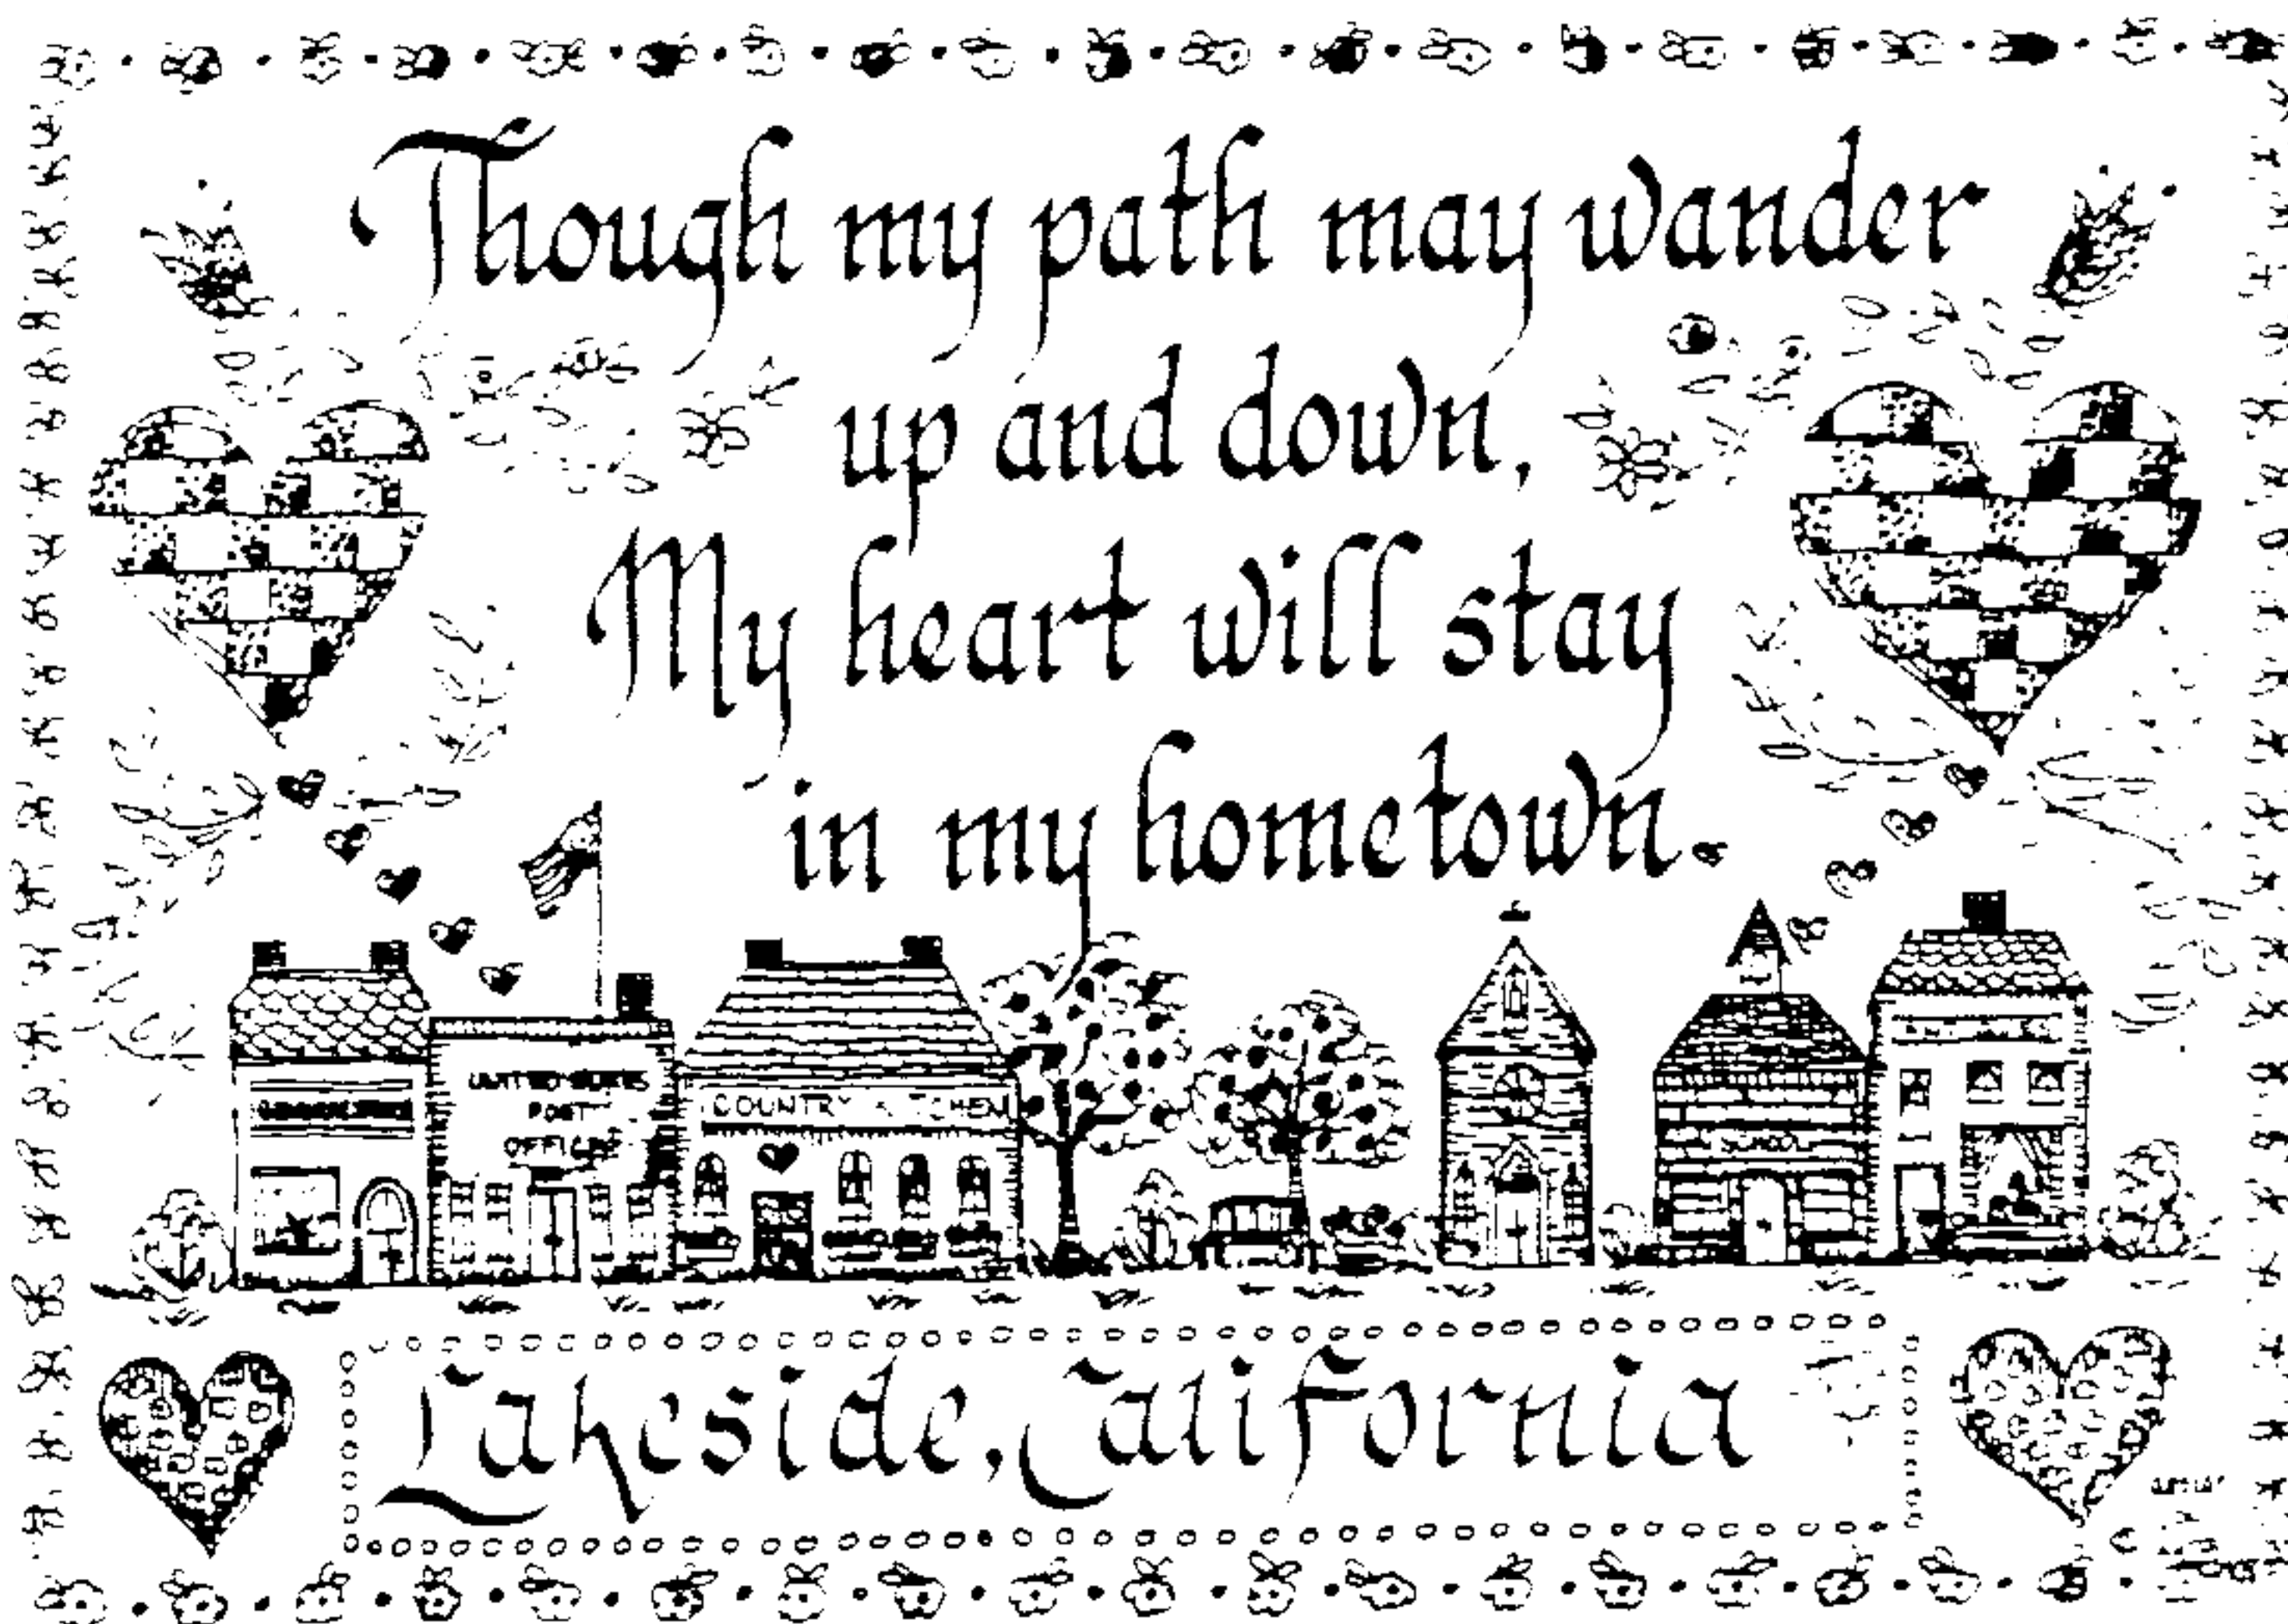 Though my path may wander
up and down,
My heart will stay
in my hometown.
UNITED STATES
POST
OFFICE
COUNTRY KITCHEN
SCHOOL
Lakeside, California